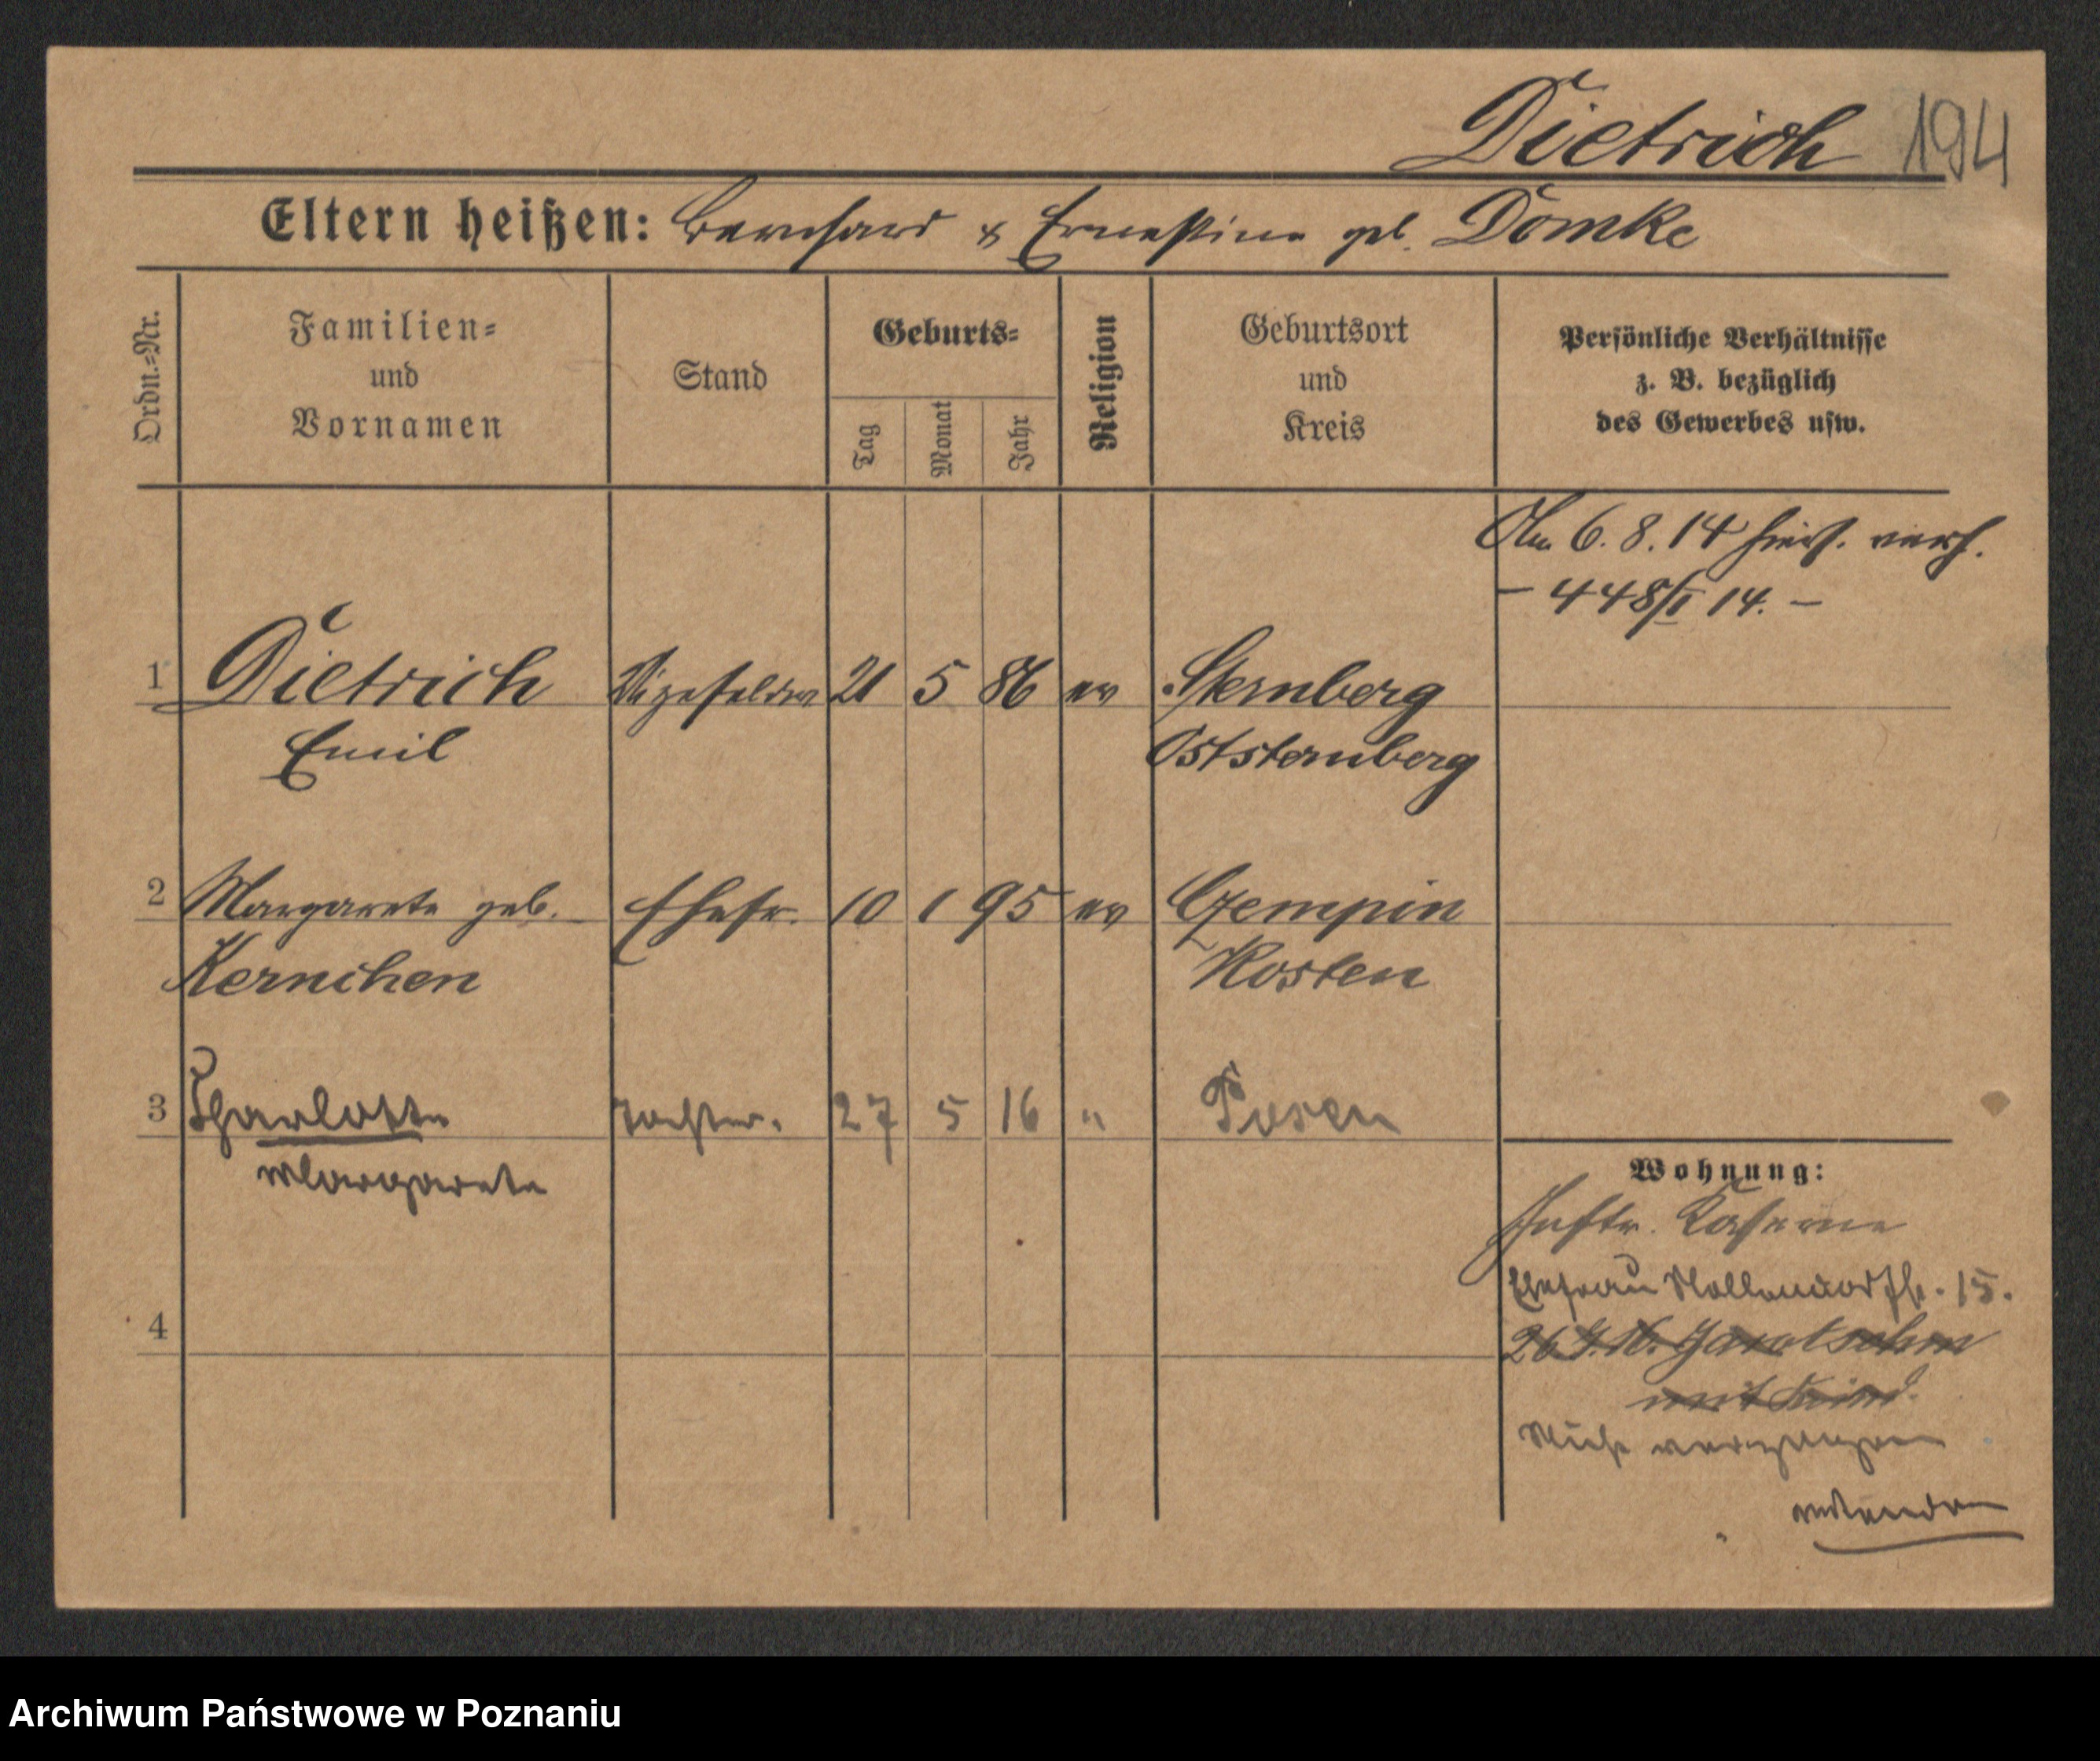 Dietrich 194
Eltern heißen: Bernhard & Ernestine geb. Domke
Ordn.-Nr.
Familien-
und
Vornamen
Stand
Geburts-
Tag
Monat
Jahr
Religion
Geburtsort
und
Kreis
Persönliche Verhältnisse
z. B. bezüglich
des Gewerbes usw.
Am 6. 8. 14 hies. verh.
- 448/I 14. -
1 Dietrich Vizefeldw 21 5 86 ev Sternberg
Emil Oststernberg
2 Margarete geb. Ehefr. 10 1 95 ev Czempin
Kernchen Kosten
3 Charlotte Tochter. 27 5 16 " Posen
Margarete
Wohnung:
Kaserne
Ehefrau 15.
4
26.7.16. Jarotschin
mit Kind.
Nicht verzogen
Archiwum Państwowe w Poznaniu